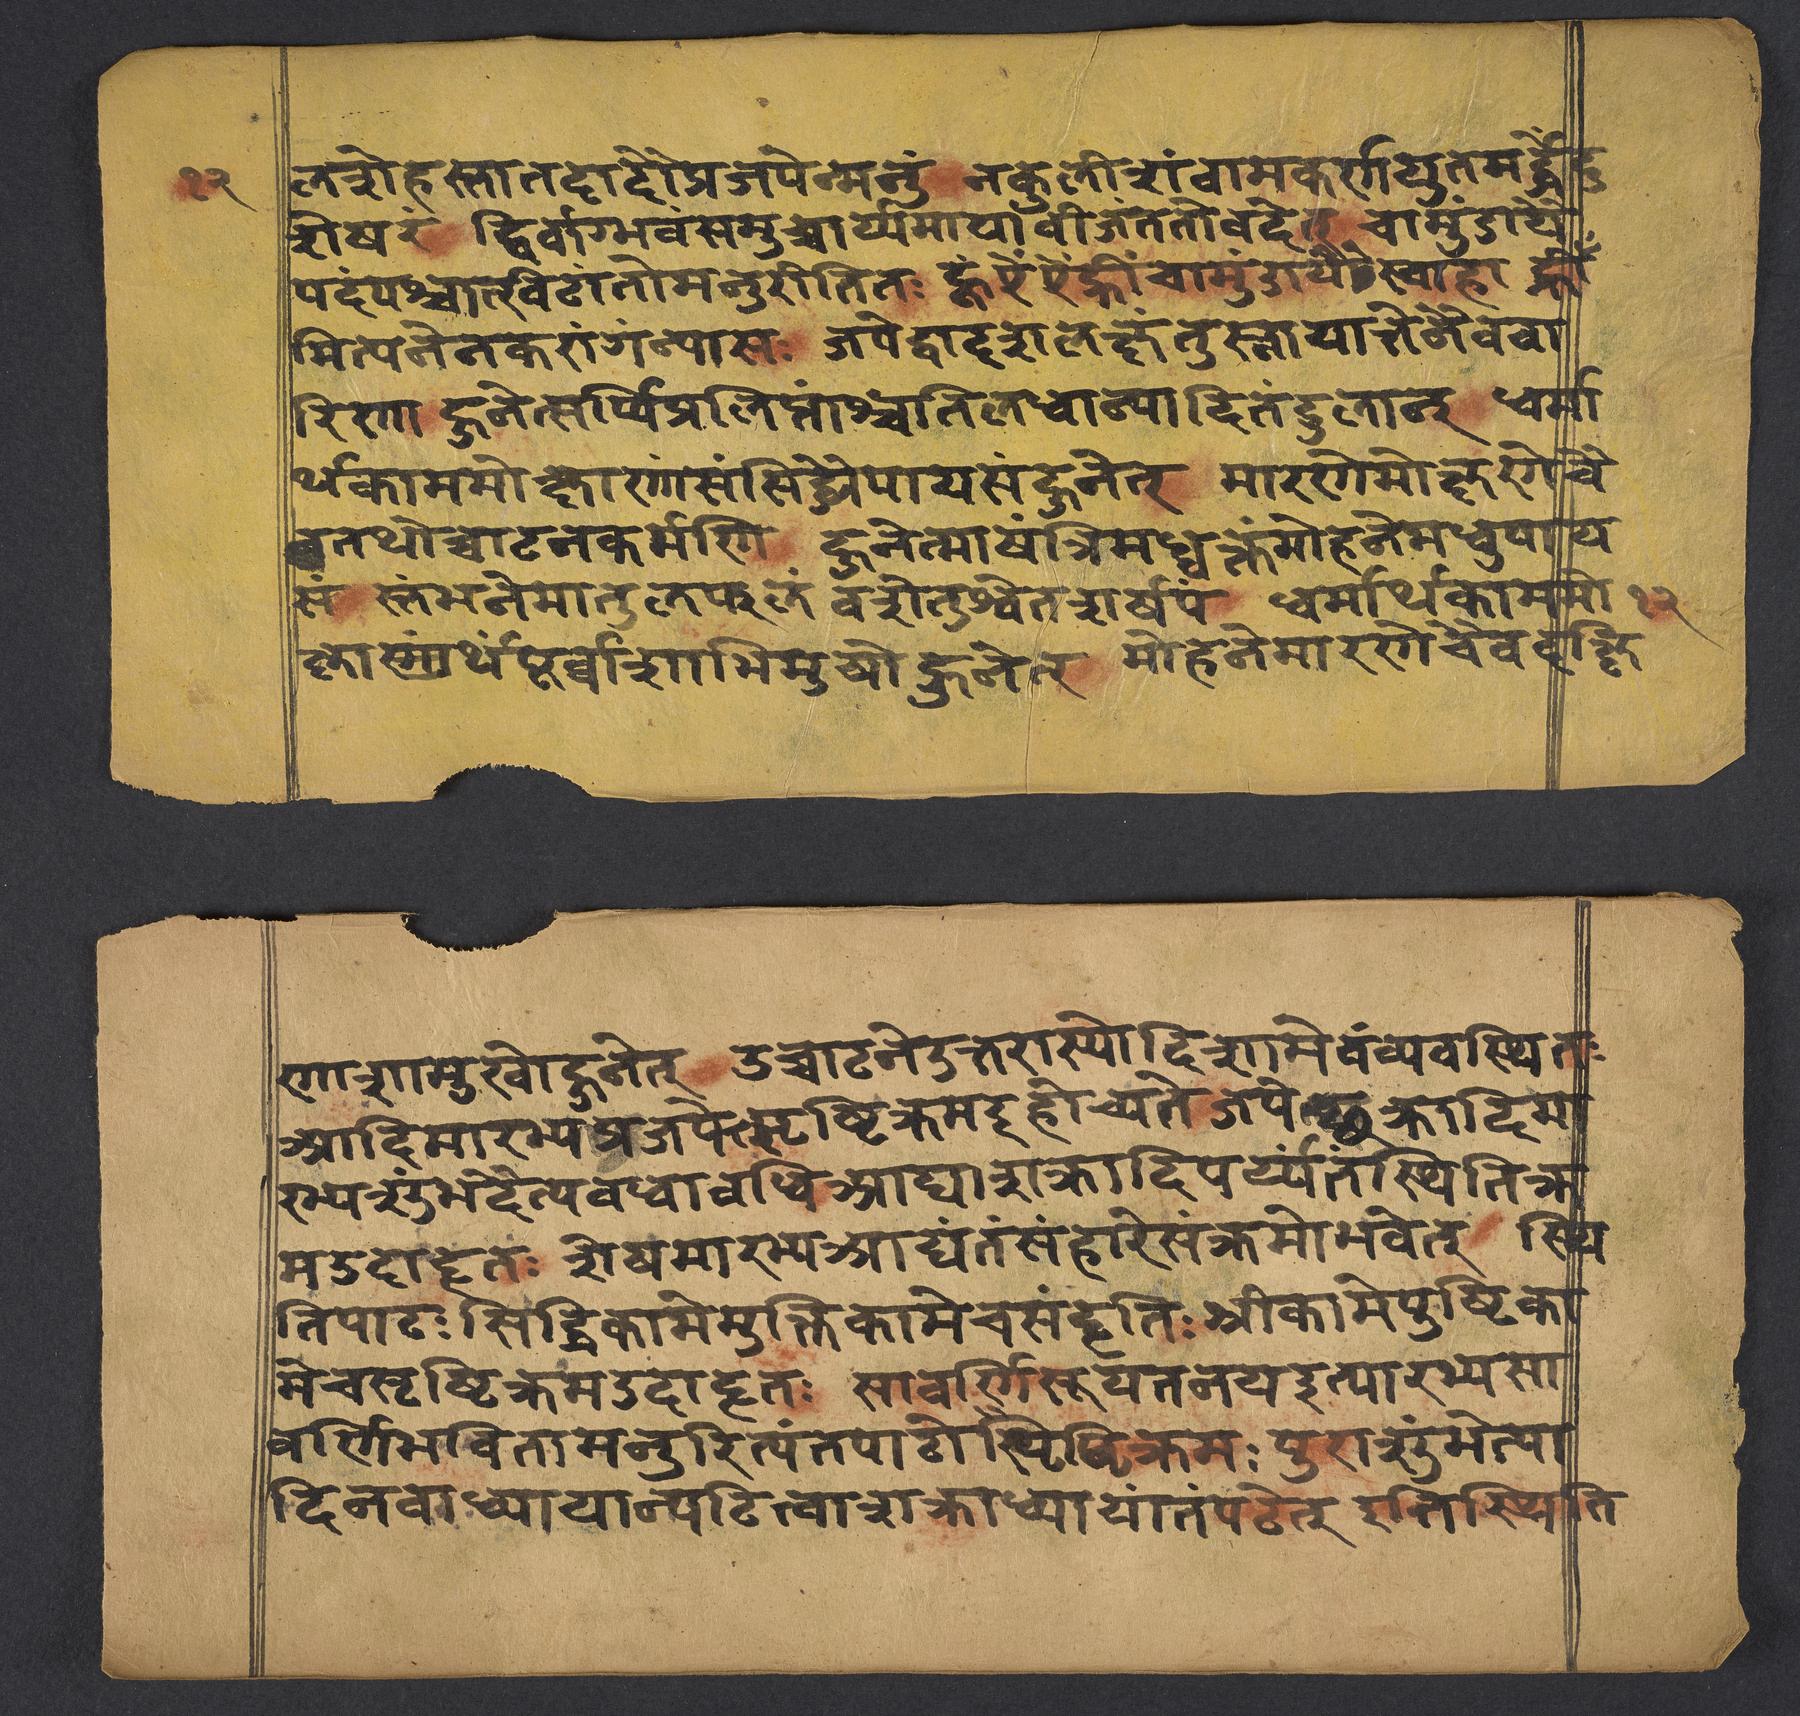 १२
लन्नोहस्तातदादौप्रजपेन्मनुं नकुलीशंवामकर्णयुतमर्द्धेंदु
शेषरं द्विर्वाग्भवंसमुच्चार्य्यमायावीजंततोवदेत् चामुंडायै
पदंपश्चात्खिटांतोमनुरीतितः ह्रूंऐंऐंह्रींचामुंडायैस्वाहा ह्री
मित्यनेनकरांगंन्यासः जपेद्वादशलक्षंतुस्नायाच्चेनैववा
रिणा हुनेत्सर्प्पिप्रलिप्तांश्चतिलधान्यादितंदुलान् धर्मा
र्थकाममोक्षाणांसंसिद्धौपायसंहुनेत् मारणेमोक्षणेचै
वतथोच्चाटनकर्मणि हुनेत्माषंत्रिमध्वक्तंमोहनेमधुपाय
सं स्तंभनेमातुलफलं वशेतुश्वेतशर्षपं धर्मार्थकाममो
१२
क्षास्मार्थंपूर्वाशाभिमुखोहुनेत् मोहनेमारणेचैवदक्षि
णाशामुखोहुनेत् उच्चाटनेउत्तरास्योदिशामेवंव्यवस्थितः
आदिमारभ्यप्रजपेत्सृष्टिक्रमइहोच्यते जपेच्छक्रादिमा
रभ्यशुंभदैत्यवधावधिआद्याशक्रादिपर्य्यंतंस्थितिक्र
मउदाहृतः शेषमारभ्यआद्यंतंसंहारेसंक्रमोभवेत् स्थि
तिपाठःसिद्धिकामेमुक्तिकामेचसंहृतिःश्रीकामेपुष्टिका
मेचसृष्टिक्रमउदाहृतः सावर्णिसूर्यतनयइत्यारभ्यसा
वर्णिभवितामनुरित्यंतपाठोसृष्टिक्रमः पुराशुंभेत्या
दिनवाध्यायान्पठित्वाशक्राध्यायांतंपठेत् इतिस्थिति